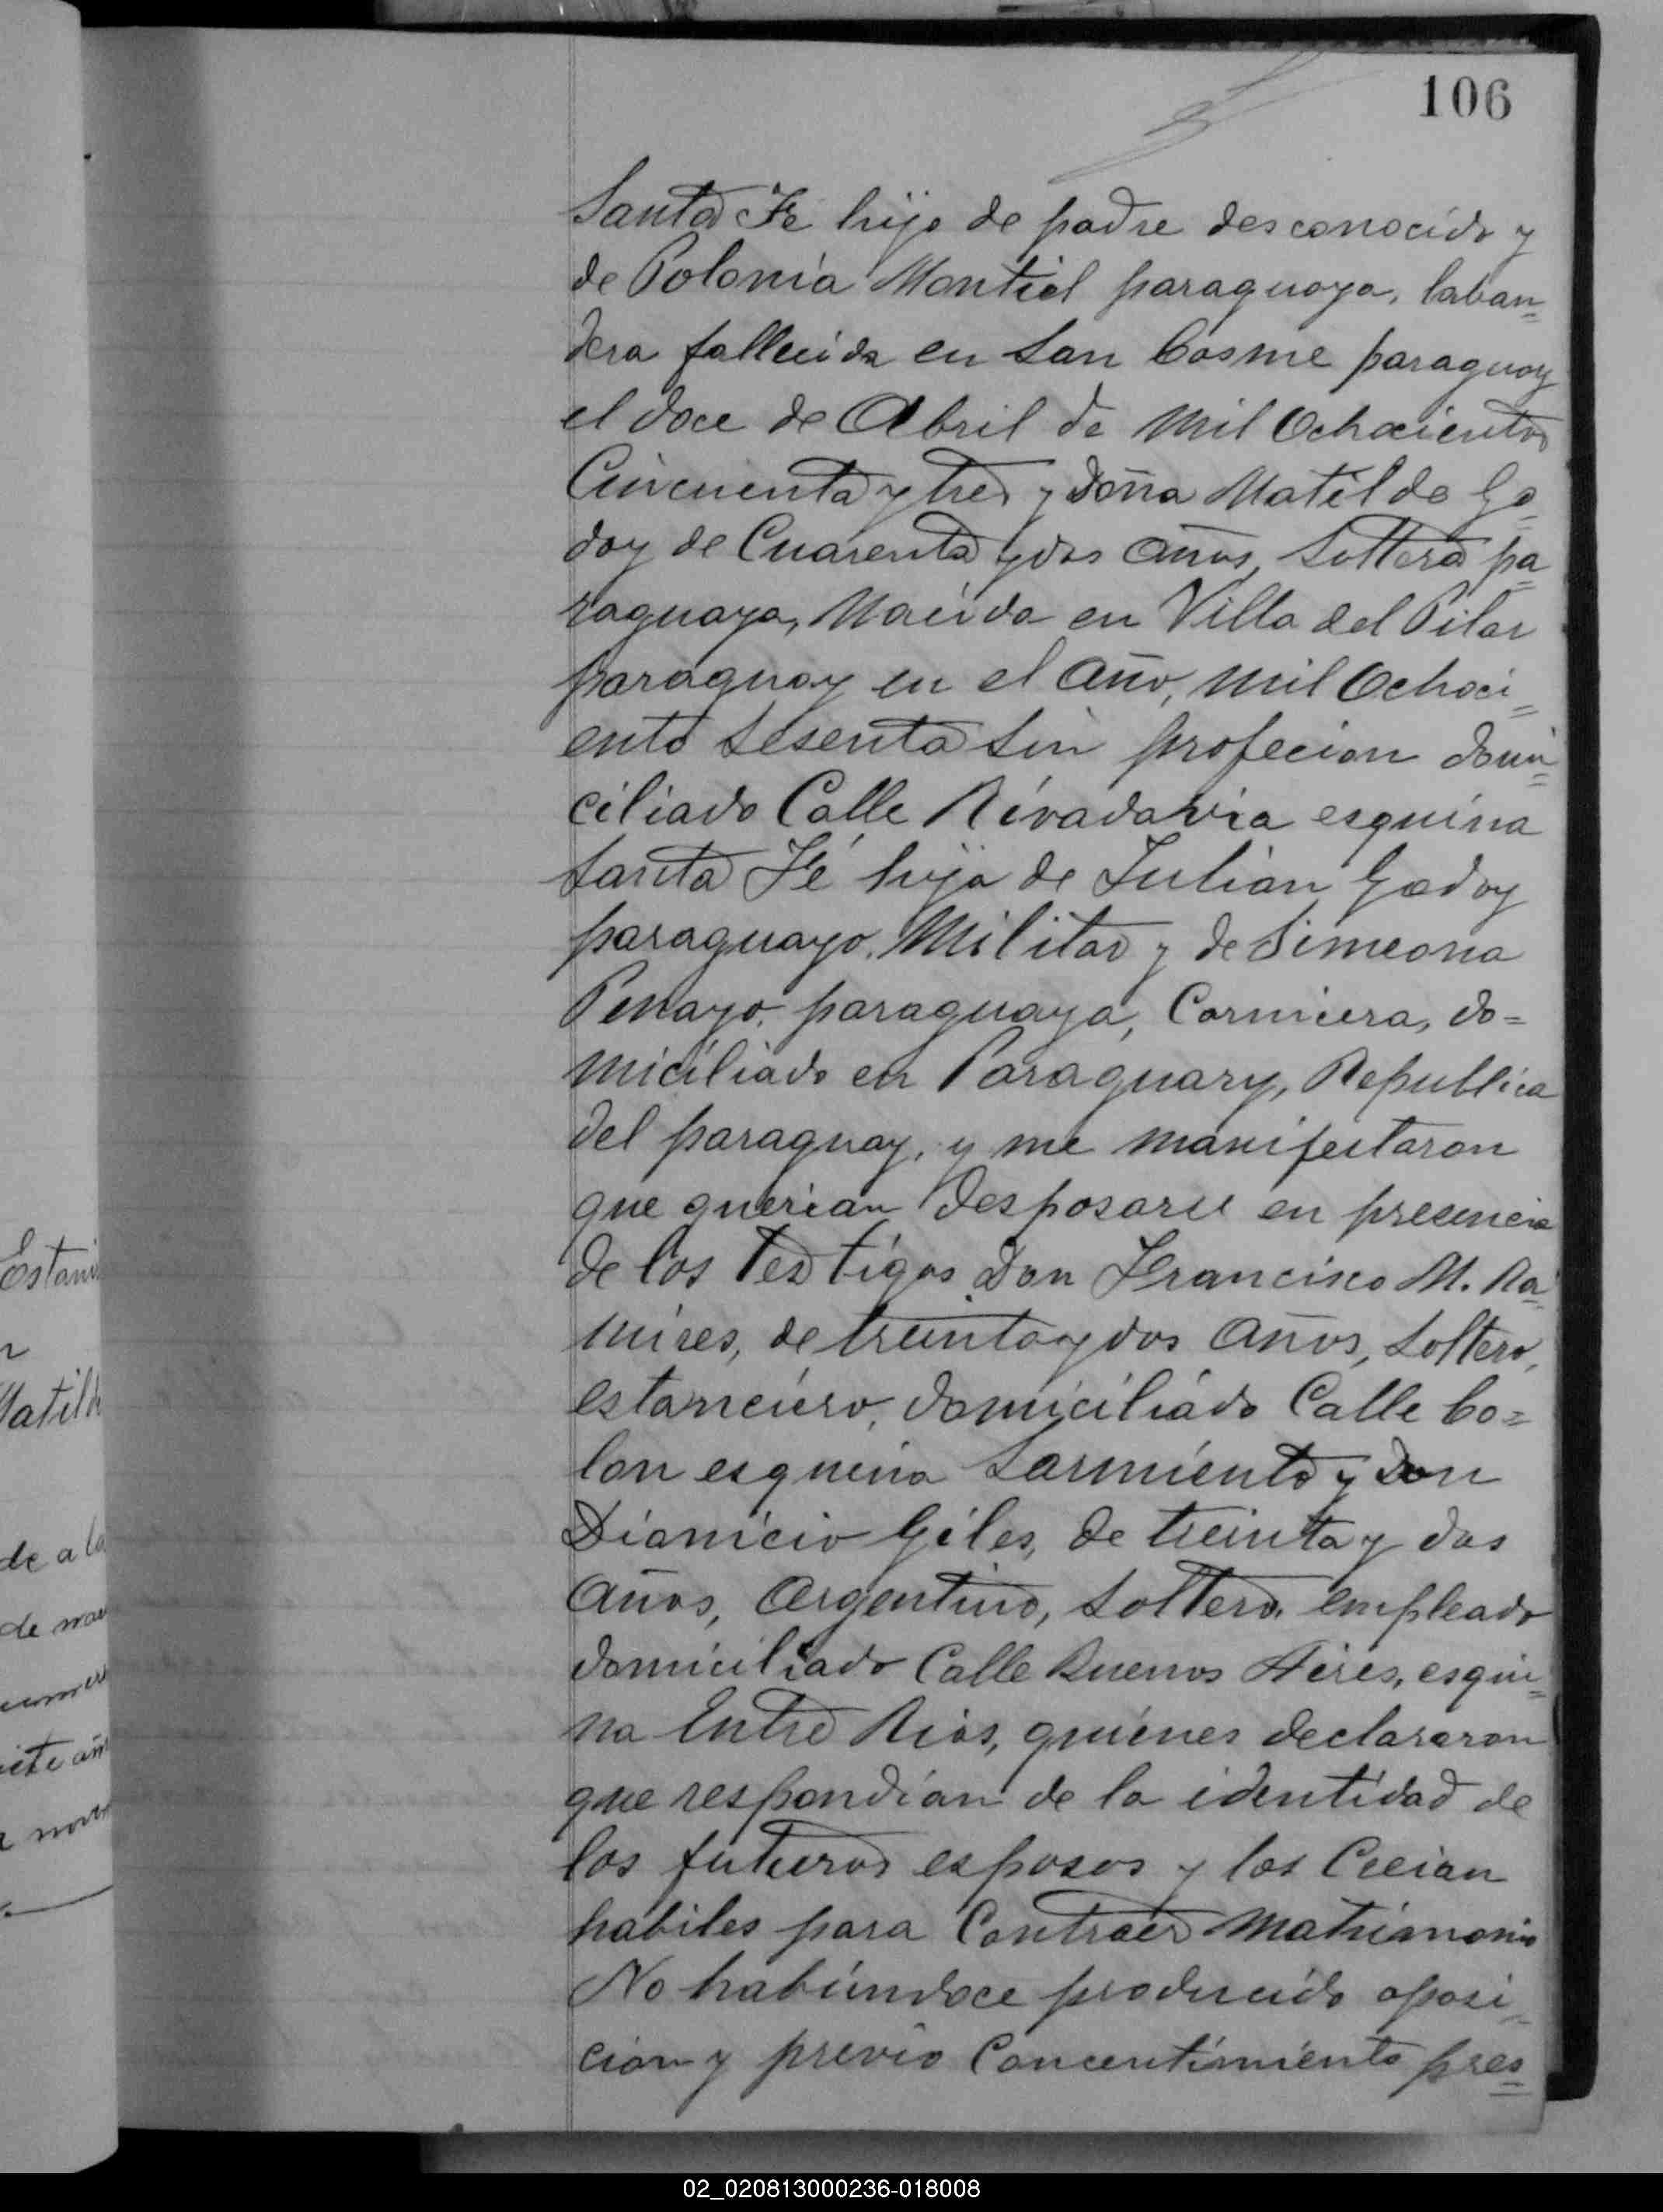 106
Santa Fé hijo de padre desconocido y
de Polonia Montiel paraguaya, laban=
dera fallecida en San Cosme paraguay
el doce de Abril de Mil Ochocientos
Cincuenta y tres y doña Matilde Go=
doy de Cuarenta y dos años, Soltera pa=
raguaya, Nacida en Villa del Pilar
paraguay en el Año, Mil Ochoci=
ento Sesenta Sin profecion domi=
ciliado Calle Rivadavia esquina
Santa Fé hija de Julian Godoy
paraguayo, Militar y de Simeona
Penayo, paraguaya, Carnicera, do=
miciliado en Paraguary, Republica
del paraguay, y me manifestaron
que querian Desposarse en precencia
de los Testigos Don Francisco M. Ra=
mires, de treinta y dos Años, Soltero,
estanciero, domiciliado Calle Co=
lon esquina Sarmiento y Don
Dionicio Giles, de treinta y dos
Años, Argentino, Soltero, empleado
domiciliado Calle Buenos Aires, esqui=
na Entre Rios, quienes declararon
que respondian de la identidad de
los futuros esposos y los Creian
habiles para Contraer Matrimonio
No habiendoce producido oposi=
cion y previo Concentimiento pres=
Estani
n
Matild
de a la
de
ete añ
02_020813000236-018008